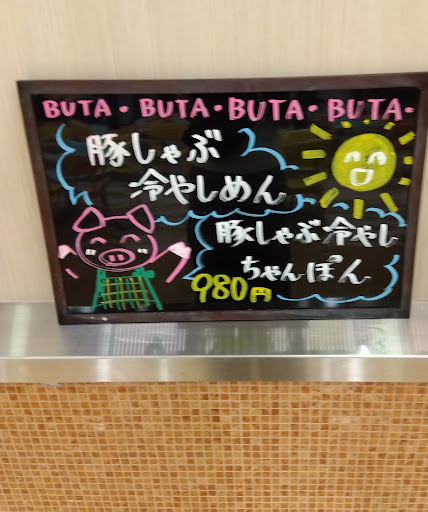 BUTA・BUTA・BUTA・BUTA・
豚しゃぶ
冷やしめん
豚しゃぶ冷やし
ちゃんぽん
980円